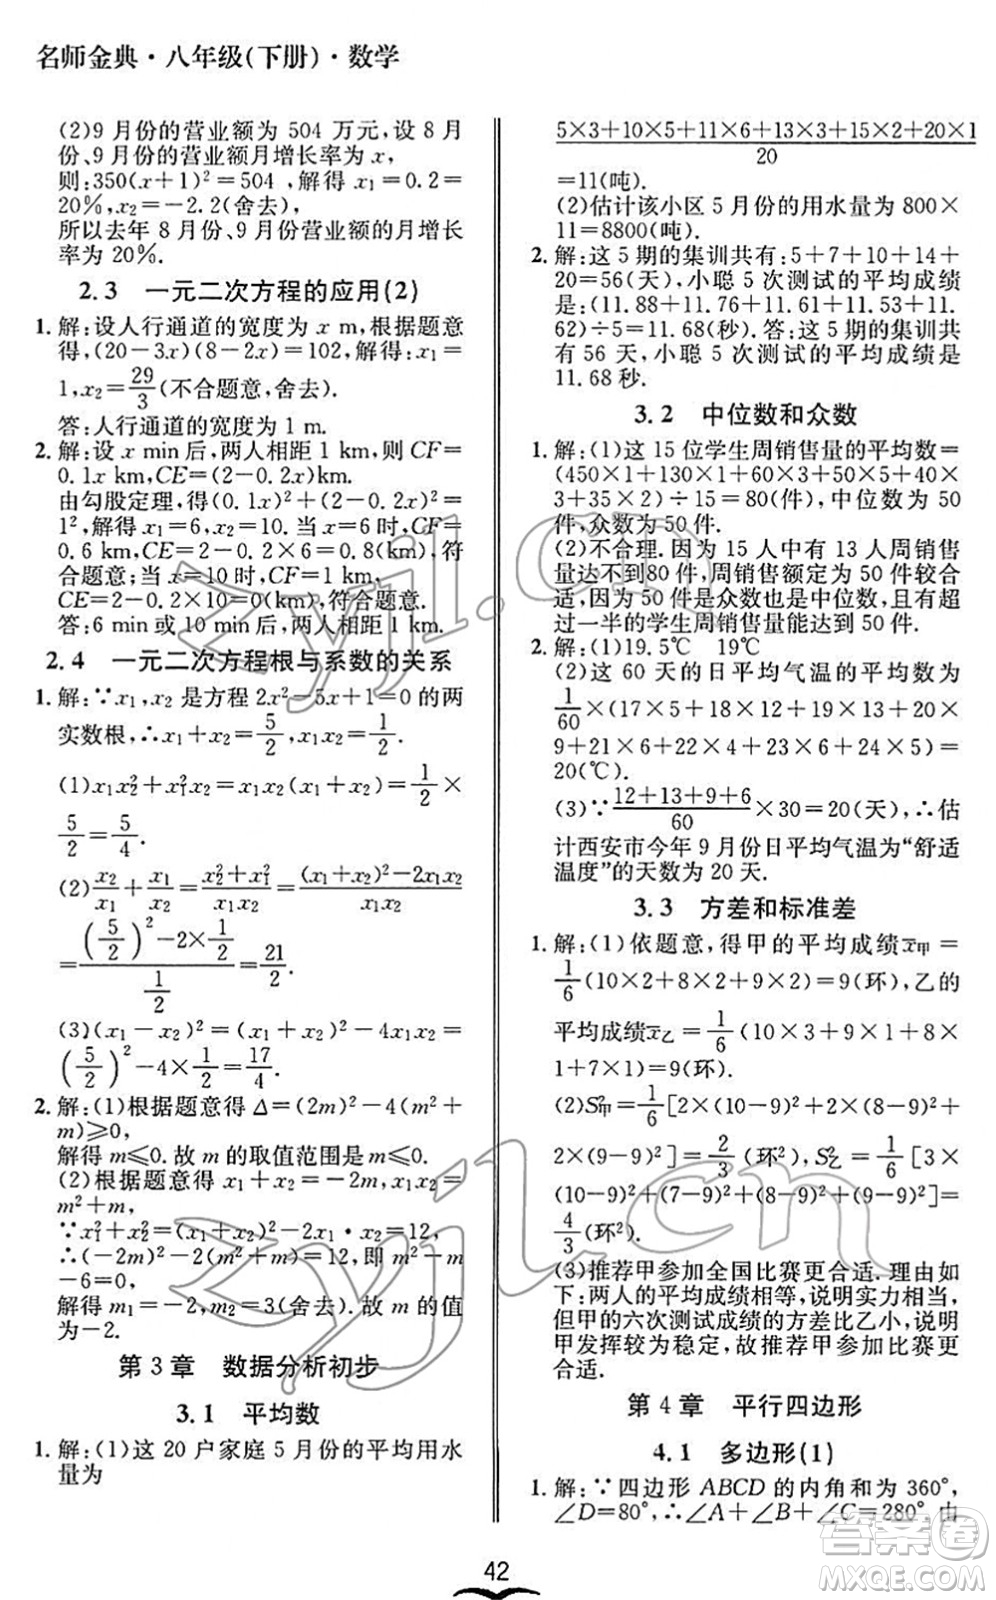 名师金典·八年级(下册)·数学
(2)9月份的营业额为504万元,设8月
份、9月份的营业额月增长率为x,
则:350(x+1)²=504,解得x₁=0.2=
20%,x₂=-2.2(舍去),
所以去年8月份、9月份营业额的月增长
率为20%.
2.3 一元二次方程的应用(2)
1.解:设人行通道的宽度为x m,根据题意
得,(20-3x)(8-2x)=102,解得:x₁=
1,x₂=29/3(不合题意,舍去).
答:人行通道的宽度为1 m.
2.解:设x min后,两人相距1 km,则CF=
0.1x km,CE=(2-0.2x)km.
由勾股定理,得(0.1x)²+(2-0.2x)²=
1²,解得x₁=6,x₂=10.当x=6时,CF=
0.6 km,CE=2-0.2×6=0.8(km),符
合题意;当x=10时,CF=1(km),
CE=2-0.2×10=0(km),符合题意.
答:6 min或10 min后,两人相距1 km.
2.4 一元二次方程根与系数的关系
1.解:∵x₁,x₂是方程2x²-5x+1=0的两
实数根,∴x₁+x₂=5/2,x₁x₂=1/2.
(1)x₁x₂²+x₁²x₂=x₁x₂(x₁+x₂)=1/2×
5/2=5/4.
(2)x₂/x₁+x₁/x₂=(x₂²+x₁²)/x₁x₂=((x₁+x₂)²-2x₁x₂)/x₁x₂
=((5/2)²-2×1/2)/(1/2)=21/2.
(3)(x₁-x₂)²=(x₁+x₂)²-4x₁x₂=
(5/2)²-4×1/2=17/4.
2.解:(1)根据题意得Δ=(2m)²-4(m²+
m)≥0,
解得m≤0.故m的取值范围是m≤0.
(2)根据题意得x₁+x₂=-2m,x₁x₂=
m²+m,
∵x₁²+x₂²=(x₁+x₂)²-2x₁·x₂=12,
∴(-2m)²-2(m²+m)=12,即m²-m
-6=0,
解得m₁=-2,m₂=3(舍去).故m的值
为-2.
第3章 数据分析初步
3.1 平均数
1.解:(1)这20户家庭5月份的平均用水
量为
(5×3+10×5+11×6+13×3+15×2+20×1)/20
=11(吨).
(2)估计该小区5月份的用水量为800×
11=8800(吨).
2.解:这5期的集训共有:5+7+10+14+
20=56(天),小聪5次测试的平均成绩
是:(11.88+11.76+11.61+11.53+11.
62)÷5=11.68(秒).答:这5期的集训共
有56天,小聪5次测试的平均成绩是
11.68秒.
3.2 中位数和众数
1.解:(1)这15位学生周销售量的平均数=
(450×1+130×1+60×3+50×5+40×
3+35×2)÷15=80(件),中位数为50
件,众数为50件.
(2)不合理.因为15人中有13人周销售
量达不到80件,周销售额定为50件较合
适,因为50是众数也是中位数,是大部分能
超过一半的学生周销售量能达到的.
2.解:(1)19.5℃ 19℃
(2)这60天的日平均气温的平均数为
1/60×(17×5+18×12+19×13+20×
9+21×6+22×4+23×6+24×5)=
20(℃).
(3)∵(12+13+9+6)/60×30=20(天),∴估
计西安市今年9月份日平均气温为“舒适
温度”的天数为20天.
3.3 方差和标准差
1.解:(1)依题意,得甲的平均成绩x̄甲=
1/6(10×2+8×2+9×2)=9(环),乙的
平均成绩x̄乙=1/6(10×3+9×1+8×1
+7×1)=9(环).
(2)S²甲=1/6[2×(10-9)²+2×(8-9)²+
2×(9-9)²]=2/3(环²),S²乙=1/6[3×
(10-9)²+(7-9)²+(8-9)²+(9-9)²]=
4/3(环²).
(3)推荐甲参加全国比赛更合适.理由如
下:两人的平均成绩相等,说明实力相当;
但甲的六次测试成绩的方差比乙小,说明
甲发挥较为稳定,故推荐甲参加比赛更
合适.
第4章 平行四边形
4.1 多边形(1)
1.解:∵四边形ABCD的内角和为360°,
∠D=80°,∴∠A+∠B+∠C=280°.由
42
zyjl.cn
zyjl.cn
答案圈
MXQE.COM